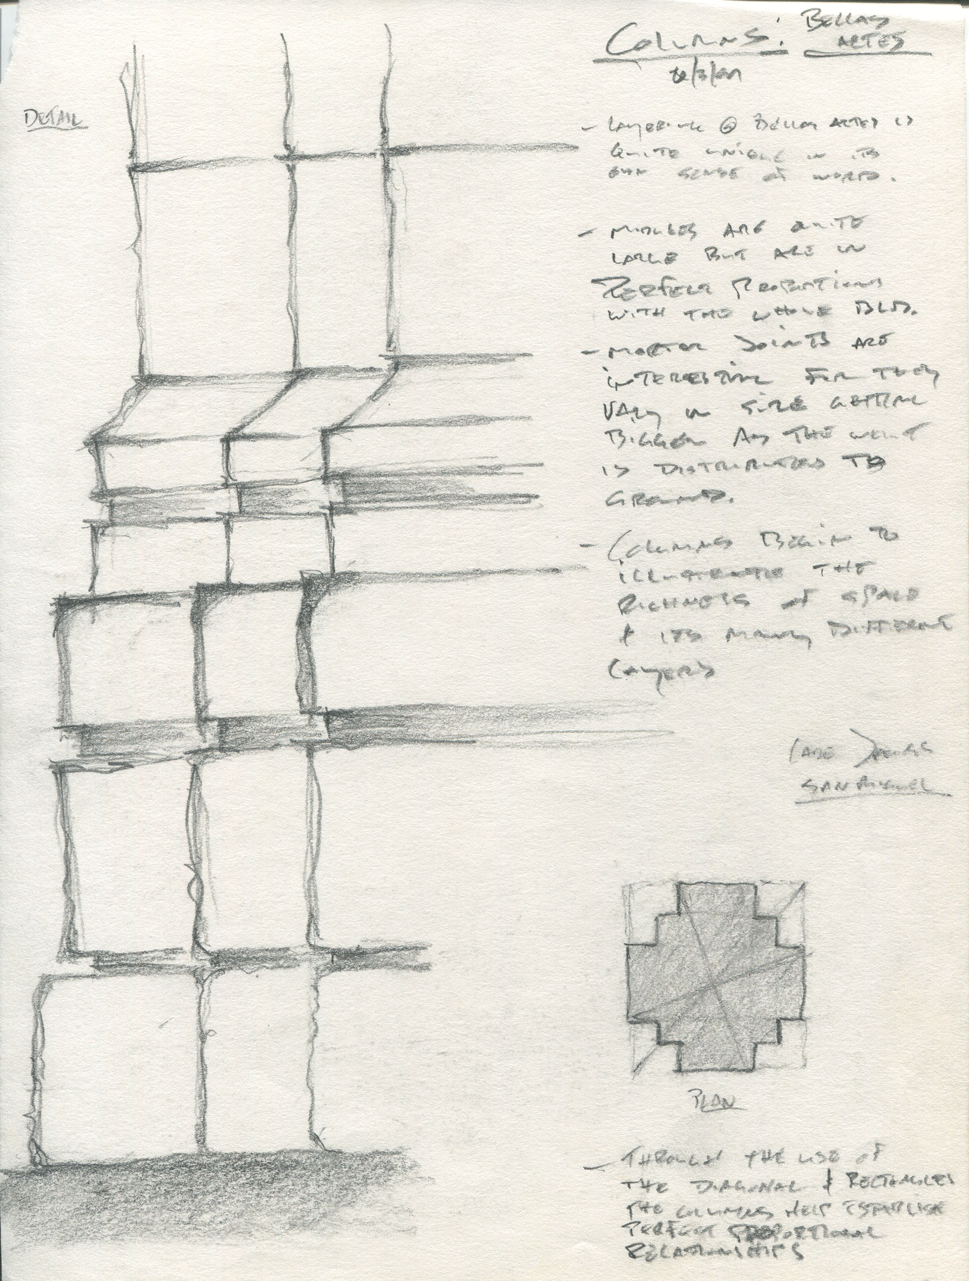 COLUMNS: BELLAS
ARTES
DETAIL
- LAYERING @ BELLAS ARTES IS
QUITE UNIQUE IN ITS
OWN SENSE OF WORLD.
- MODULES ARE QUITE
LARGE BUT ARE IN
PERFECT PROPORTIONS
WITH THE WHOLE BLD.
- MORTAR JOINTS ARE
INTERESTING FOR THEY
VARY IN SIZE GETTING
BIGGER AS THE
IS DISTRIBUTED TO
GROUND.
- COLUMNS BEGIN TO
ILLUSTRATE THE
RICHNESS OF SPACE
& ITS MANY DIFFERENT
LAYERS
SAN MIGUEL
PLAN
- THROUGH THE USE OF
THE DIAGONAL & RECTANGLES
THE COLUMNS HELP ESTABLISH
PERFECT PROPORTIONAL
RELATIONSHIPS